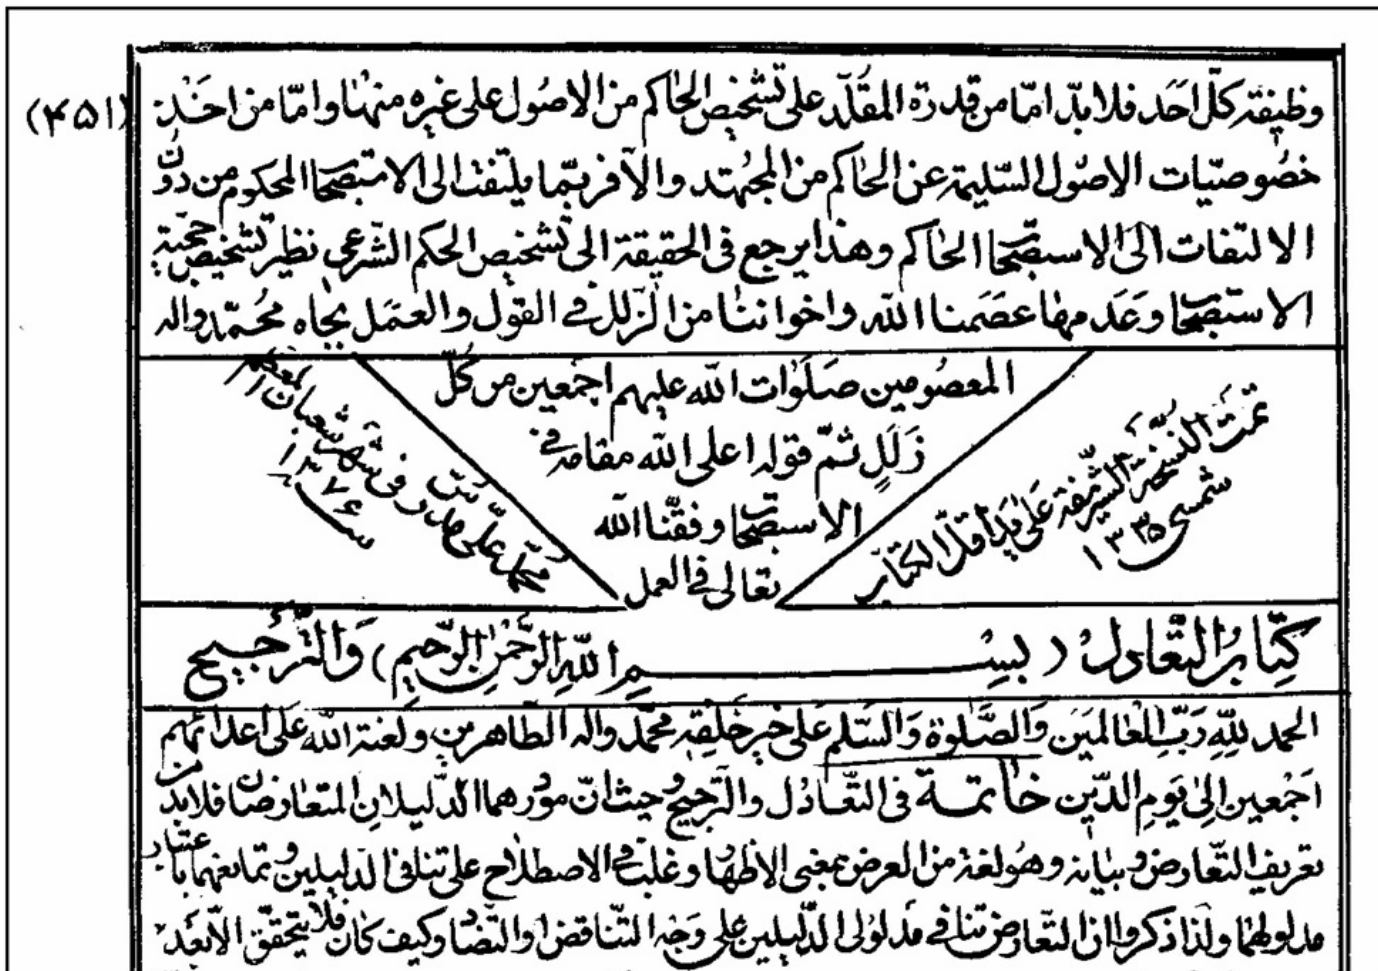 (۴۵۱)
وظيفة كلّ احد فلا بدّ امّا من قدرة المقلّد على تشخيص الحاكم من الاصول على غيره منها وامّا من اخذ
خصوصيّات الاصول السّليمة عن الحاكم من المجتهد والّا فربّما يلتفت الى الاستصحاب المحكوم من دون
الالتفات الى الاستصحاب الحاكم وهذا يرجع فى الحقيقة الى تشخيص الحكم الشّرعى نظير تشخيص حجيّة
الاستصحاب وعدمها عصمنا اللّه واخواننا من الزّلل فى القول والعمل بجاه محمّد واله
المعصومين صلوات اللّه عليهم اجمعين من كلّ
زلل ثمّ قوله اعلى اللّه مقامه فى
الاستصحاب وفقّنا اللّه
تعالى فى العمل
تمّت النّسخة الشّريفة على يد اقلّ الكتّاب
شمسى ۱۳۳۵
محمّد على فى شهر شعبان المعظم
سنه ۱۳۷۶
كتاب التّعادل (بسم اللّه الرّحمن الرّحيم) والتّرجيح
الحمد للّه ربّ العالمين والصّلوة والسّلم على خير خلقه محمّد واله الطّاهرين ولعنة اللّه على اعدائهم
اجمعين الى يوم الدّين خاتمة فى التّعادل والتّرجيح وحيث انّ موردهما الدّليلان المتعارضان فلا بدّ من
تعريف التّعارض وبيانه وهو لغة من العرض بمعنى الاظهار وغلب فى الاصطلاح على تنافى الدّليلين وتمانعهما باعتبار
مدلولهما ولذا ذكروا ان التّعارض تنافى مدلولى الدّليلين على وجه التّناقض او التّضاد وكيف كان فلا يتحقّق الّا بعد